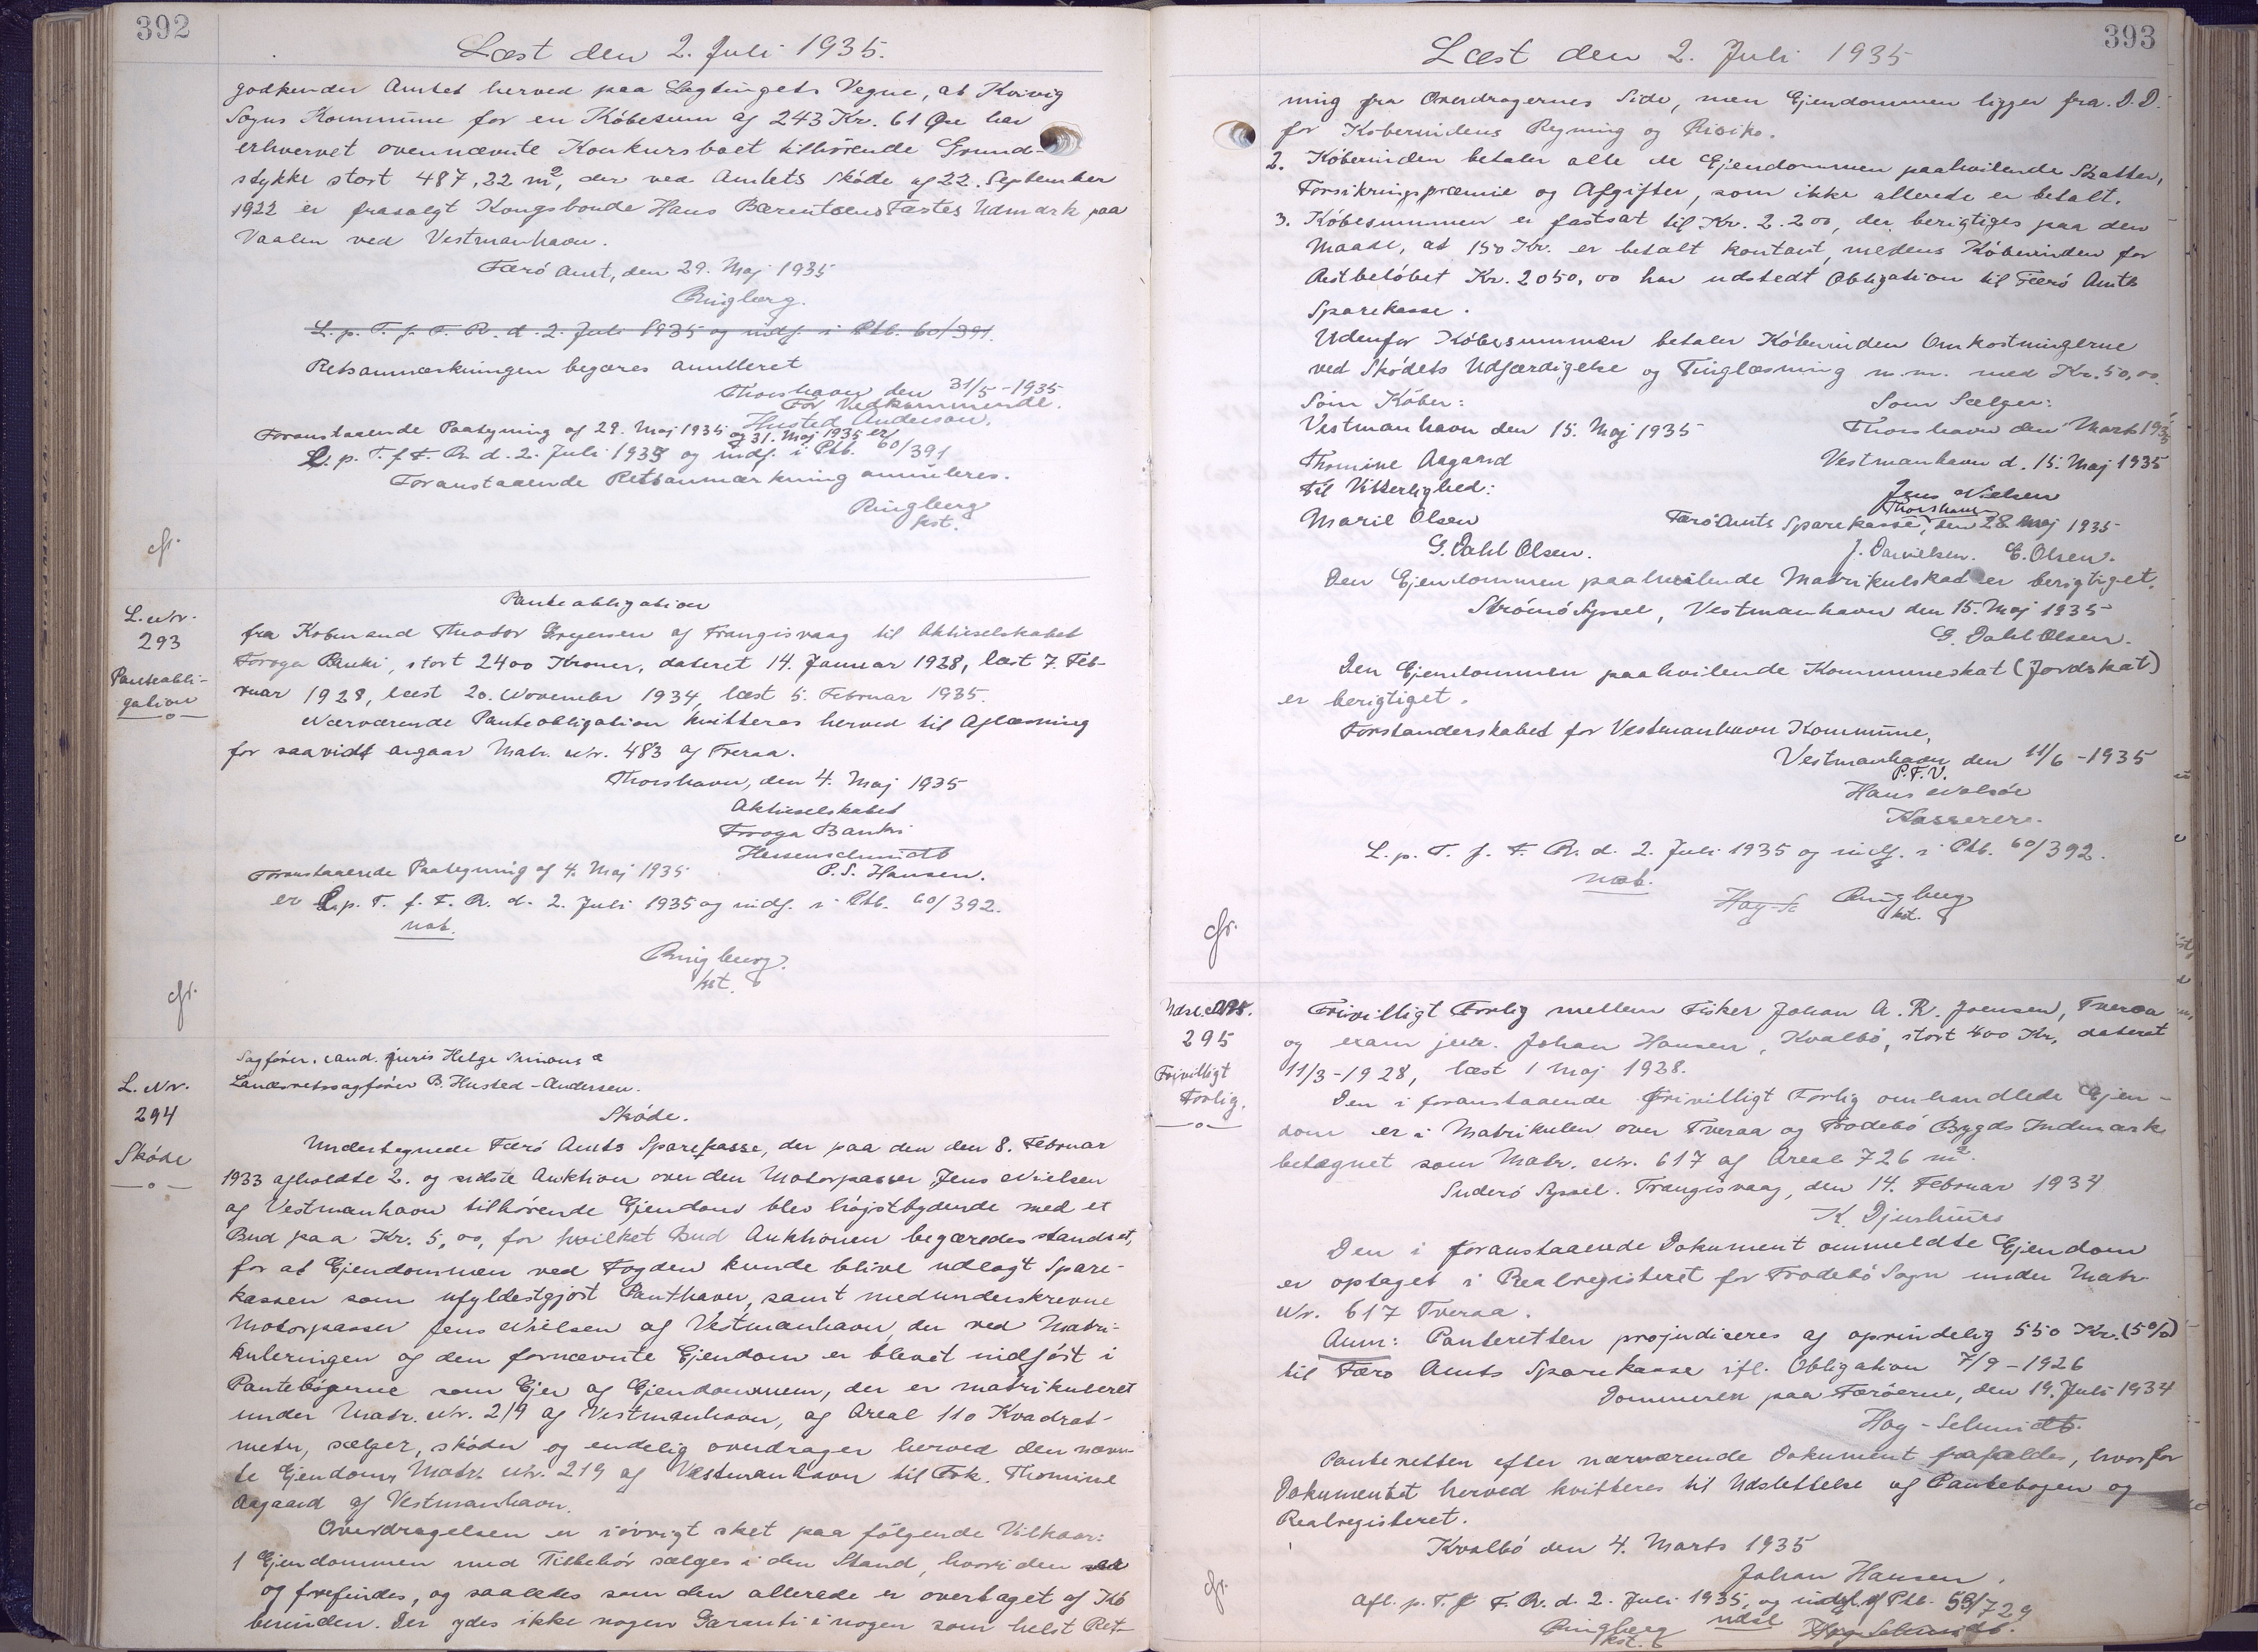 392
Læst den 2. Juli 1935.
godkender Amtet herved paa Lagtingets Vegne, at Kvivig
Sogns Kommune for en Købesum af 243 Kr. 61 Øre har
erhvervet ovennævnte Konkursboet tilhørende Grund-
stykke stort 487,22 m², der ved Amtets Skøde af 22. September
1922 er frasolgt Kongsbonde Hans Bærentsens Fæstes Udmark paa
Vaalen ved Vestmanhavn.
Færø Amt, den 29. Maj 1935
Ringberg.
L. p. T. f. F. R. d. 2. Juli 1935 og indf. i Ptb. 60/391.
Retsanmærkningen begæres annulleret
Thorshavn den 31/5-1935
For Vedkommende.
Husted Andersen.
Foranstaaende Paategning af 29. Maj 1935 og 31. Maj 1935 er
L. p. T. f. F. R. d. 2. Juli 1935 og indf. i Ptb. 60/391
Foranstaaende Retsanmærkning annuleres.
Ringberg
kst.
cfr.
L. Nr.
293
Panteobli-
gation
Panteobligation
fra Købmand Thodor Gregersen af Trangisvaag til Aktieselskabet
Føroya Banki, stort 2400 Kroner, dateret 14. Januar 1928, læst 7. Feb-
ruar 1928, læst 20. November 1934, læst 5. Februar 1935.
Nærværende Panteobligation kvitteres herved til Aflæsning
for saavidt angaar Matr. Nr. 483 af Tveraa.
Thorshavn, den 4. Maj 1935
Aktieselskabet
Føroya Banki
Hessenschmidt
P. S. Hansen.
Foranstaaende Paategning af 4. Maj 1935
er L. p. T. f. F. R. d. 2. Juli 1935 og indf. i Ptb. 60/392.
not.
Ringberg.
kst.
cfr.
L. Nr.
294
Skøde
Sagfører, cand. juris Helge
Landsretssagfører B. Husted-Andersen.
Skøde.
Undertegnede Færø Amts Sparekasse, der paa den den 8. Februar
1933 afholdte 2. og sidste Auktion over den Motorpasser Jens Nielsen
af Vestmanhavn tilhørende Ejendom blev højstbydende med et
Bud paa Kr. 5,00, for hvilket Bud Auktionen begæredes standset,
for at Ejendommen ved Fogden kunde blive udlagt Spare-
kassen som ufyldestgjort Panthaver, samt medunderskrevne
Motorpasser Jens Nielsen af Vestmanhavn, der ved Matri-
kuleringen og den fornævnte Ejendom er blevet indført i
Pantebøgerne som Ejer af Ejendommen, der er matrikuleret
under Matr. Nr. 219 af Vestmanhavn, af Areal 110 Kvadrat-
meter, sælger, skøder og endelig overdrager herved den nævn-
te Ejendom, Matr. Nr. 219 af Vestmanhavn til Frk. Thomine
Aagaard af Vestmanhavn.
Overdragelsen er iøvrigt sket paa følgende Vilkaar:
1 Ejendommen med Tilbehør sælges i den Stand, hvori den
og forefindes, og saaledes som den allerede er overtaget af Kø
berinden. Der ydes ikke nogen Garanti i nogen som helst Ret-
393
Læst den 2. Juli 1935
ning fra Overdragernes Side, men Ejendommen ligger fra D.D.
for Køberindens Regning og Risiko.
2. Køberinden betaler alle de Ejendommen paahvilende Skatter,
Forsikringspræmie og Afgifter, som ikke allerede er betalt.
3. Købesummen er fastsat til Kr. 2.200, der berigtiges paa den
Maade, at 150 Kr. er betalt kontant, medens Køberinden for
Restbeløbet Kr. 2050,00 har udstedt Obligation til Færø Amts
Sparekasse.
Udenfor Købesummen betaler Køberinden Omkostningerne
ved Skødets Udfærdigelse og Tinglæsning m.m. med Kr. 50,00.
Som Køber: Som Sælger:
Vestmanhavn den 15. Maj 1935 Thorshavn den Marts 1935
Thomine Aagaard Vestmanhavn d. 15. Maj 1935
Til Vitterlighed: Jens Nielsen
Marie Olsen Færø Amts Sparekasse, Thorshavn den 28 Maj 1935
G. Dahl Olsen. J. Danielsen. E. Olsen.
Den Ejendommen paahvilende Matrikulskat er berigtiget.
Strømø Syssel, Vestmanhavn den 15. Maj 1935
G. Dahl Olsen.
Den Ejendommen paahvilende Kommuneskat (Jordskat)
er berigtiget.
Forstanderskabet for Vestmanhavn Kommune,
Vestmanhavn den 11/6-1935
P.F.V.
Hans
Kasserer.
L. p. T. f. F. R. d. 2. Juli 1935 og indf. i Ptb. 60/392.
not.
Høy-Sc Ringberg
kst.
cfr.
295
Frivilligt
Forlig.
Frivilligt Forlig mellem Fisker Johan A. R. Joensen, Tveraa
og exam jur. Johan Hansen, Kvalbø, stort 400 Kr, dateret
11/3-1928, læst 1 Maj 1928.
Den i foranstaaende Frivilligt Forlig omhandlede Ejen-
dom er i Matrikulen over Tveraa og Frodebø Bygds Indmark
betegnet som Matr. Nr. 617 af Areal 726 m².
Suderø Syssel. Trangisvaag, den 14. Februar 1934
K. Djurhuus
Den i foranstaaende Dokument ommeldte Ejendom
er optaget i Realregisteret for Frodebø Sogn under Matr.
Nr. 617 Tveraa.
Anm: Panteretten præjudiceres af oprindelig 550 Kr. (5%)
til Færø Amts Sparekasse ifl. Obligation 7/9-1926
Dommeren paa Færøerne, den 19. Juli 1934
Høy-Schmidt.
Panteretten efter nærværende Dokument frafaldes, hvorfor
Dokumentet herved kvitteres til Udslettelse af Pantebogen og
Realregisteret.
Kvalbø den 4. Marts 1935
Johan Hansen.
Afl. p. T. f. F. R. d. 2. Juli 1935, og udsl. af Ptb. 53/729
Ringberg udsl Høy-Schmidt.
kst.
cfr.